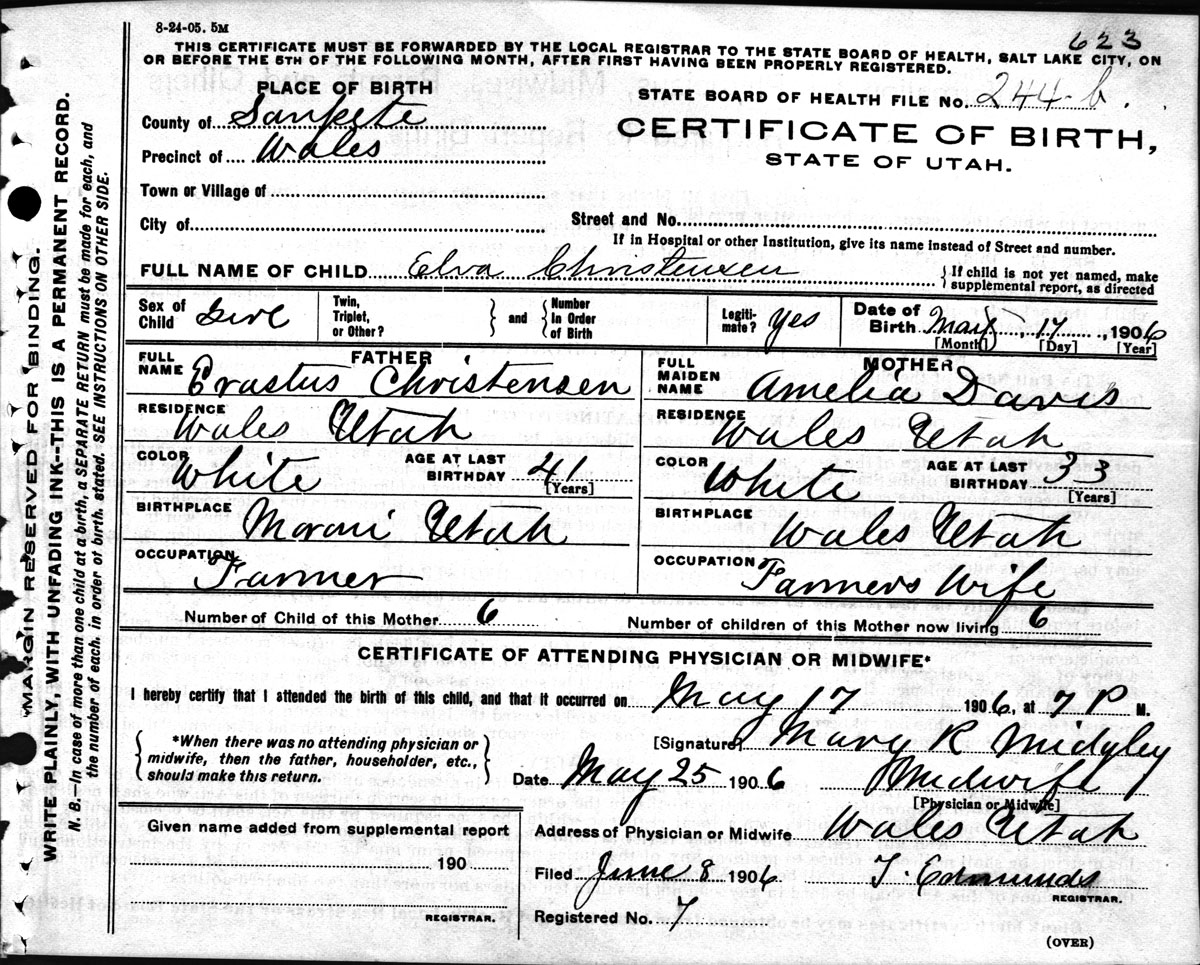 8-24-05. 5M
623
THIS CERTIFICATE MUST BE FORWARDED BY THE LOCAL REGISTRAR TO THE STATE BOARD OF HEALTH, SALT LAKE CITY, ON
OR BEFORE THE 5TH OF THE FOLLOWING MONTH, AFTER FIRST HAVING BEEN PROPERLY REGISTERED.
PLACE OF BIRTH
STATE BOARD OF HEALTH FILE No. 244-b.
County of Sanpete
CERTIFICATE OF BIRTH,
Precinct of Wales
STATE OF UTAH.
Town or Village of
City of
Street and No.
If in Hospital or other Institution, give its name instead of Street and number.
FULL NAME OF CHILD Elva Christensen
{If child is not yet named, make
supplemental report, as directed
Sex of Child Girl
Twin, Triplet, or Other? } and { Number In Order of Birth
Legiti-mate? Yes
Date of Birth May 17, 1906
[Month] [Day] [Year]
FATHER
FULL NAME Erastus Christensen
MOTHER
FULL MAIDEN NAME Amelia Davis
RESIDENCE Wales Utah
RESIDENCE Wales Utah
COLOR White AGE AT LAST BIRTHDAY 41 [Years]
COLOR White AGE AT LAST BIRTHDAY 33 [Years]
BIRTHPLACE Moroni Utah
BIRTHPLACE Wales Utah
OCCUPATION Farmer
OCCUPATION Farmers Wife
Number of Child of this Mother 6
Number of children of this Mother now living 6
CERTIFICATE OF ATTENDING PHYSICIAN OR MIDWIFE*
I hereby certify that I attended the birth of this child, and that it occurred on May 17 1906, at 7 P M.
{ *When there was no attending physician or
midwife, then the father, householder, etc.,
should make this return. }
[Signature] Mary R Midgley
Date May 25 1906 Midwife
[Physician or Midwife]
Given name added from supplemental report
190
REGISTRAR.
Address of Physician or Midwife Wales Utah
Filed June 8 1906 T. Edmunds
REGISTRAR.
Registered No. 7
(OVER)
MARGIN RESERVED FOR BINDING.
WRITE PLAINLY, WITH UNFADING INK--THIS IS A PERMANENT RECORD.
N. B. In case of more than one child at a birth, a SEPARATE RETURN must be made for each, and
the number of each. in order of birth. stated. SEE INSTRUCTIONS ON OTHER SIDE.